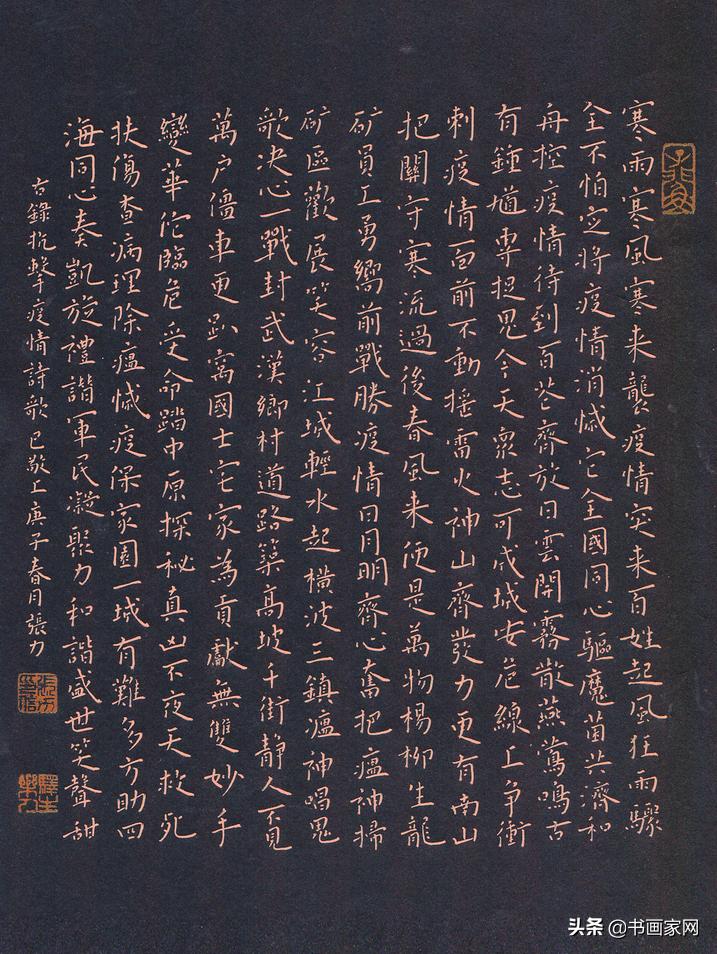 寒雨寒风寒来襲疫情突来百姓起風狂雨驟
全不怕定将疫情消㓕它全國同心驅魔菌共濟和
舟控疫情待到百芲齊放日雲開霧散燕鶯鳴古
有鍾馗專捉鬼今天衆志可成城安危線上争衝
刺疫情面前不動摇雷火神山齊發力更有南山
把關守寒流過後春風来便是萬物楊柳生龍
矿員工勇嚮前戰勝疫情日月明齊心奮把瘟神掃
矿區歡展笑容江城輕水起横波三鎮瘟神唱鬼
歌决心一戰封武漢鄉村道路築高坡千街静人不見
萬户僵車更趴窩國士宅家為貢獻無雙妙手
變華佗臨危受命踏中原探秘真凶不夜天救死
扶傷查病理除瘟㓕疫保家園一城有難多方助四
海同心奏凱旋禮諧軍民凝聚力和諧盛世笑聲甜
右錄抗擊疫情詩歌 已敬上庚子春月張力
头条 @书画家网